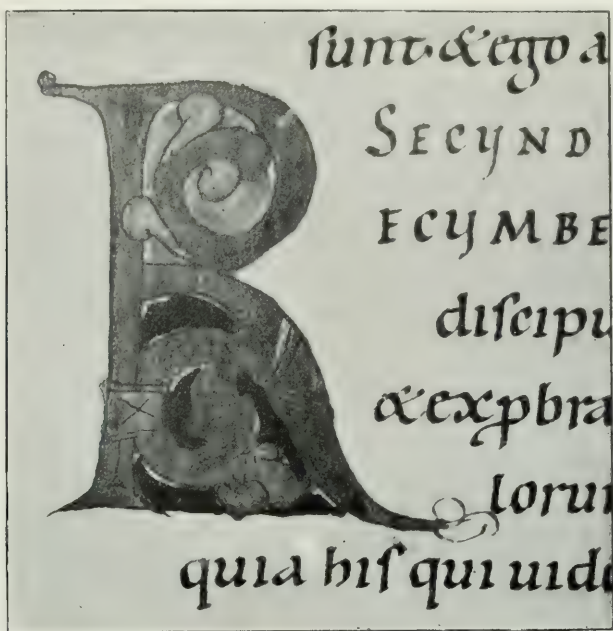 sunt·&ego a
SECUND
RECUMBE
discipu
&expbra
lorum
quia his qui uide